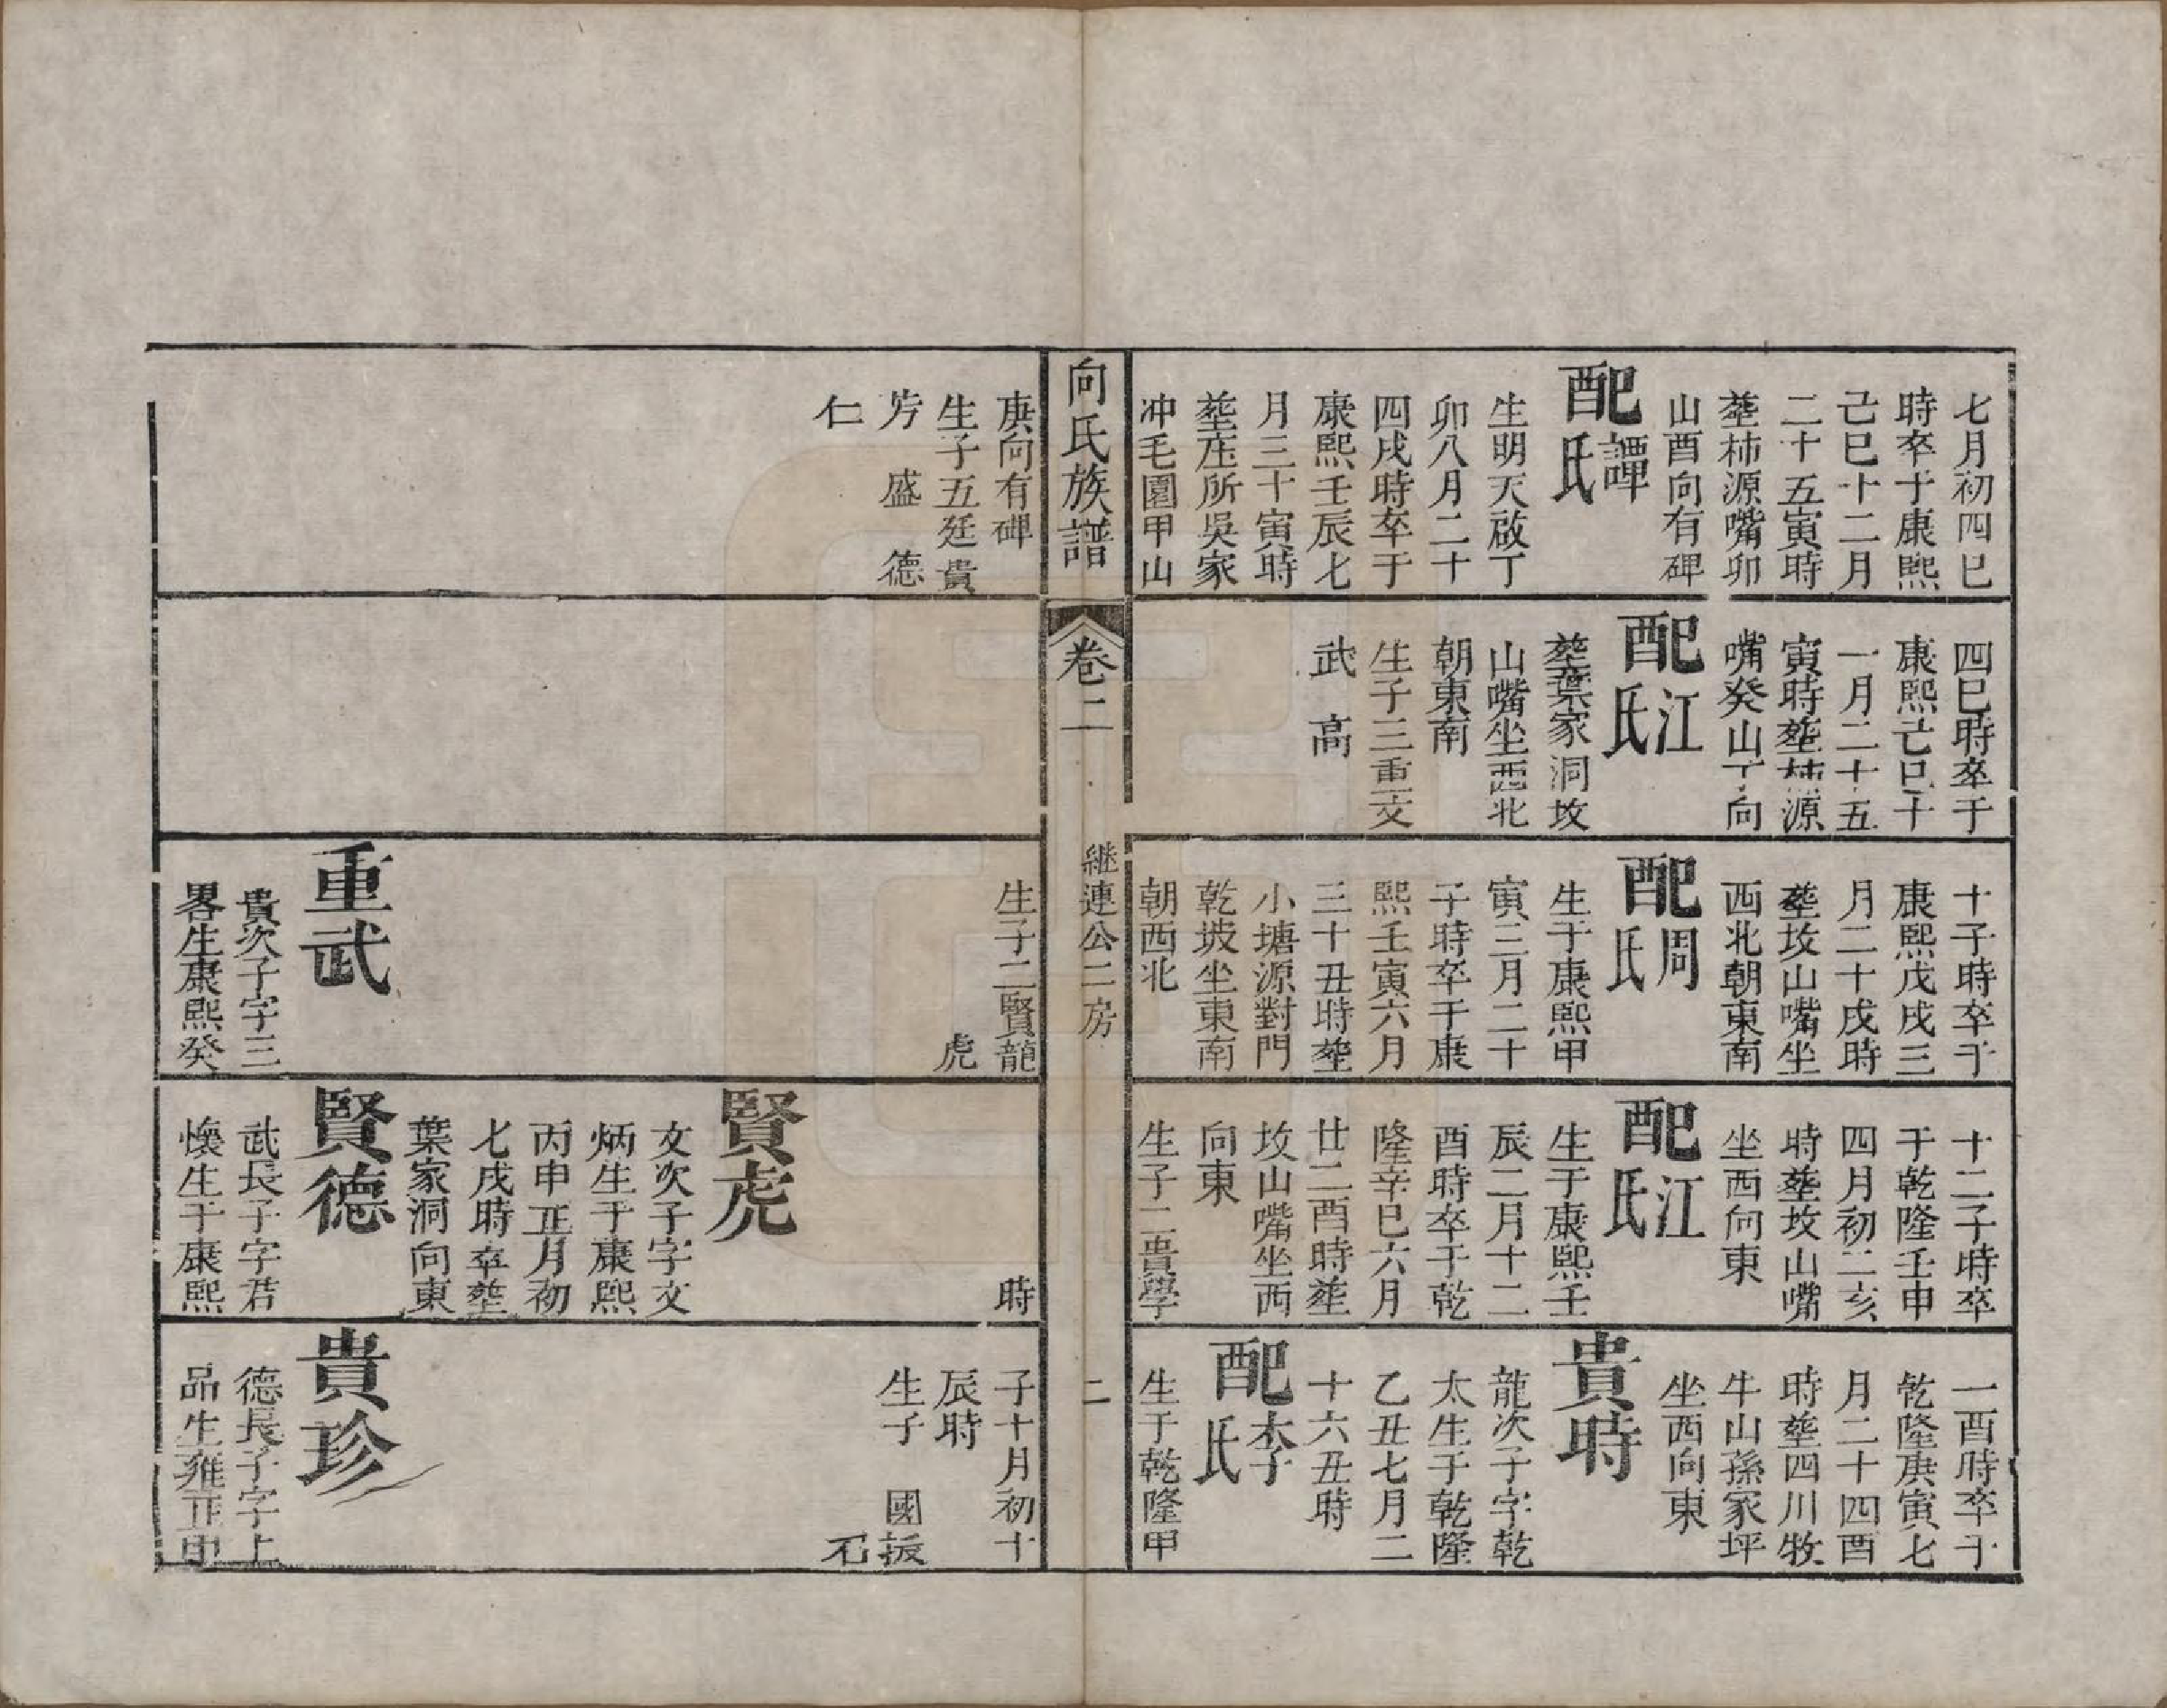 七月初四巳
時卒于康熙
己巳十二月
二十五寅時
塟柿源嘴卯
山酉向有碑
配譚氏
生明天啟丁
卯八月二十
四戌時卒于
康熙壬辰七
月三十寅時
塟庄所吳家
冲毛園甲山
四巳時卒于
康熙己巳十
一月二十五
寅時塟柿源
嘴癸山丁向
配江氏
塟葉家洞坟
山嘴坐西北
朝東南
生子三重文
武 高
十子時卒于
康熙戊戌三
月二十戌時
塟坟山嘴坐
西北朝東南
配周氏
生于康熙甲
寅三月二十
子時卒于康
熙壬寅六月
三十丑時塟
小塘源對門
乾坡坐東南
朝西北
十二子時卒
于乾隆壬申
四月初二亥
時塟坟山嘴
坐西向東
配江氏
生于康熙壬
辰二月十二
酉時卒于乾
隆辛巳六月
廿二酉時塟
坟山嘴坐西
向東
生子二貴學
一酉時卒于
乾隆庚寅七
月二十四酉
時塟四川牧
牛山孫家坪
坐西向東
貴時
龍次子字乾
太生于乾隆
乙丑七月二
十六丑時
配李氏
生于乾隆甲
向氏族譜
卷二
継連公二房
二
庚向有碑
生子五廷貴
芳 盛 德
仁
生子二賢龍
虎
重武
貴次子字三
畧生康熙癸
時
賢虎
文次子字文
炳生于康熙
丙申正月初
七戌時卒塟
葉家洞向東
賢德
武長子字君
懷生于康熙
子十月初十
辰時
生子 國振
石
貴珍
德長子字上
品生雍正甲